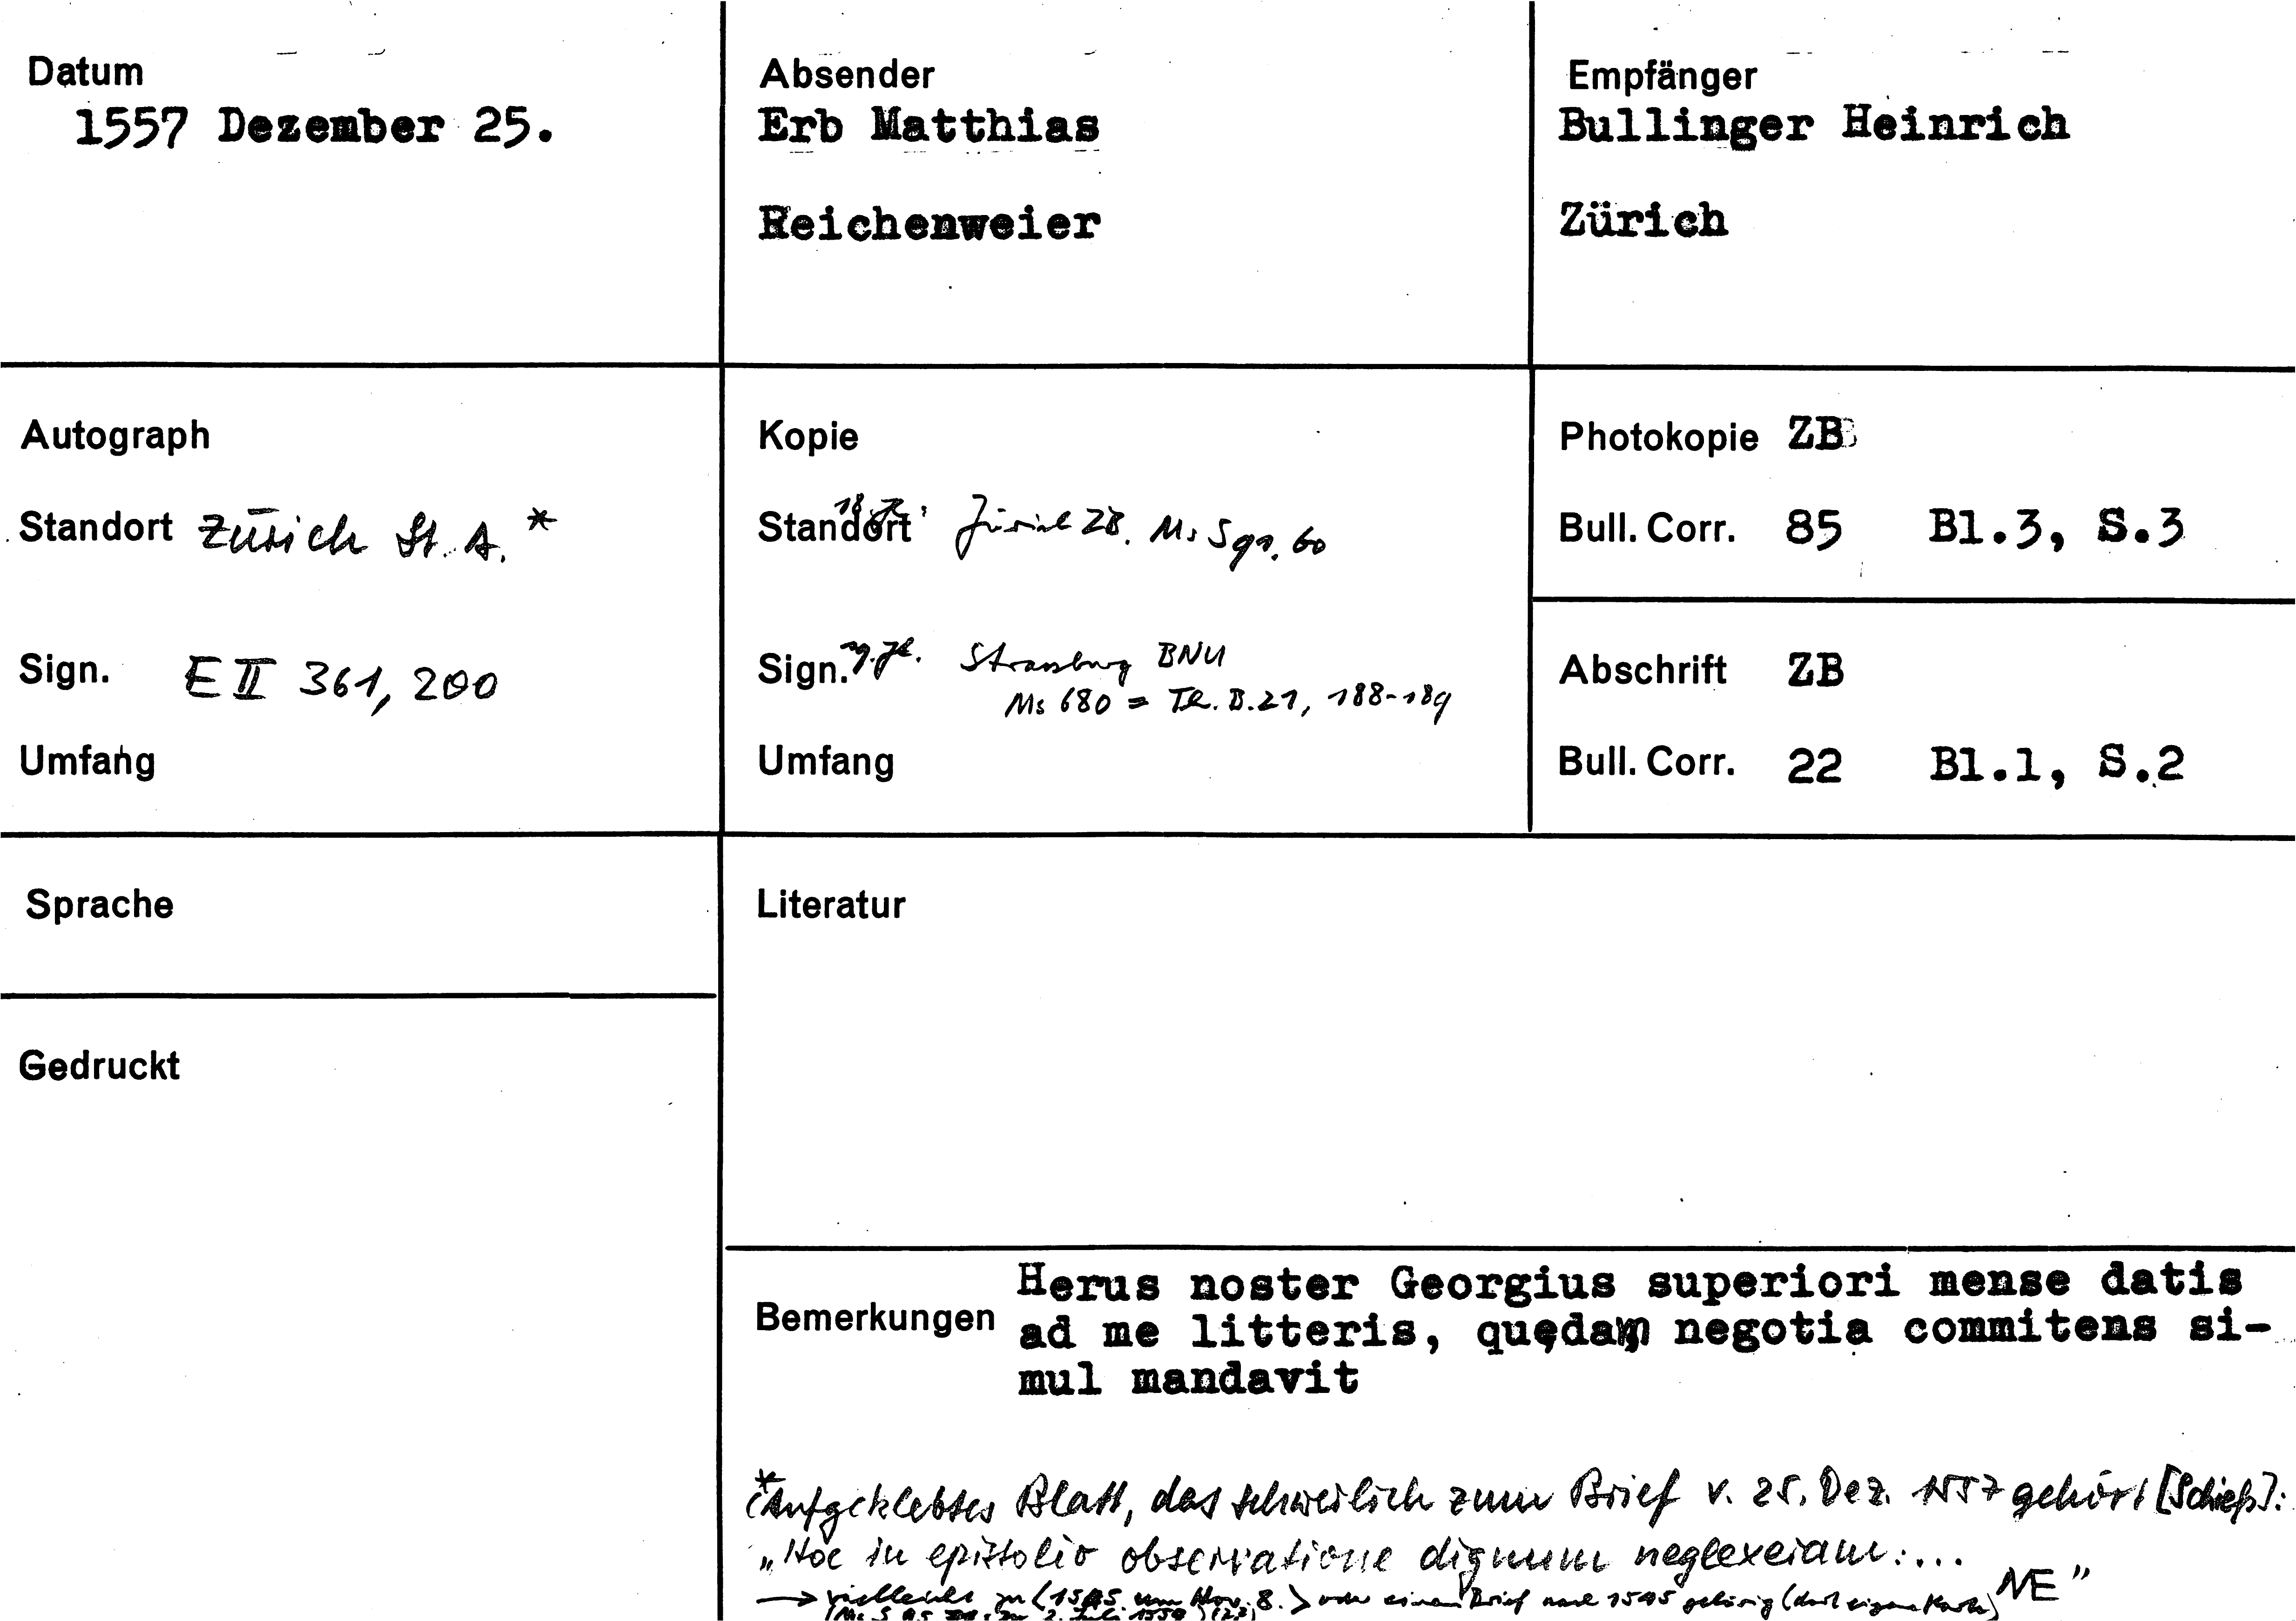 Datum
1557 Dezember 25.
Absender
Erb Matthias
Reichenweier
Empfänger
Bullinger Heinrich
Zürich
Autograph
Standort Zürich St. A. *
Sign. E II 361, 200
Umfang
Kopie
Standort Zürich ZB. Ms S 60
Sign. Strassburg BNU
Ms 680 = Th. B. 21, 188-189
Umfang
Photokopie ZB
Bull. Corr. 85 Bl.3, S.3
Abschrift ZB
Bull. Corr. 22 Bl.1, S.2
Sprache
Gedruckt
Literatur
Bemerkungen
Herus noster Georgius superiori mense datis
ad me litteris, quędam negotia commitens si-
mul mandavit
(*Aufgeklebtes Blatt, das schwerlich zum Brief v. 25. Dez. 1557 gehört [Schieß]:
„Hoc in epistolio observatione dignum neglexeram:...
→ vielleicht zu <1545. um Nov. 8.> oder einem Brief nach 1545 gehörig (dort eigene Karte) NE"